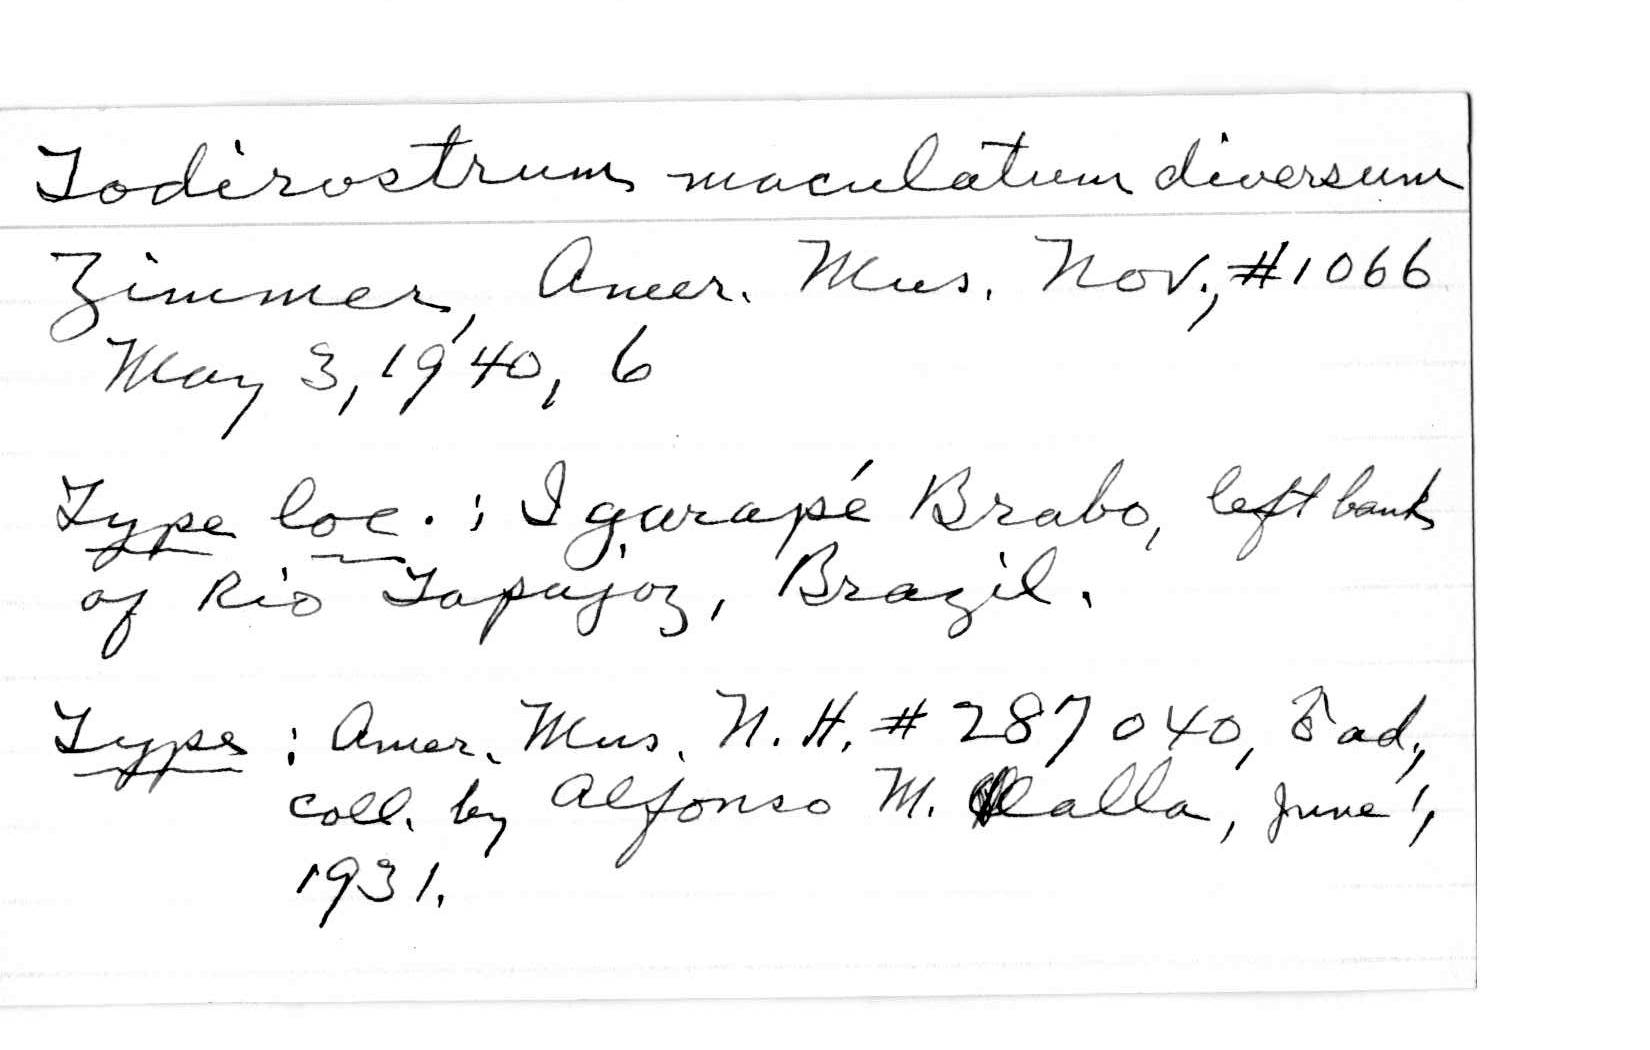 Todirostrum maculatum diversum
Zimmer, Amer. Mus. Nov., #1066
May 3, 1940, 6
Type loc. : Igarapé Brabo, left bank
of Rio Tapajoz, Brazil.
Type : Amer. Mus. N. H. # 287040, ♂ ad.,
coll. by Alfonso M. Olalla, June 1,
1931.